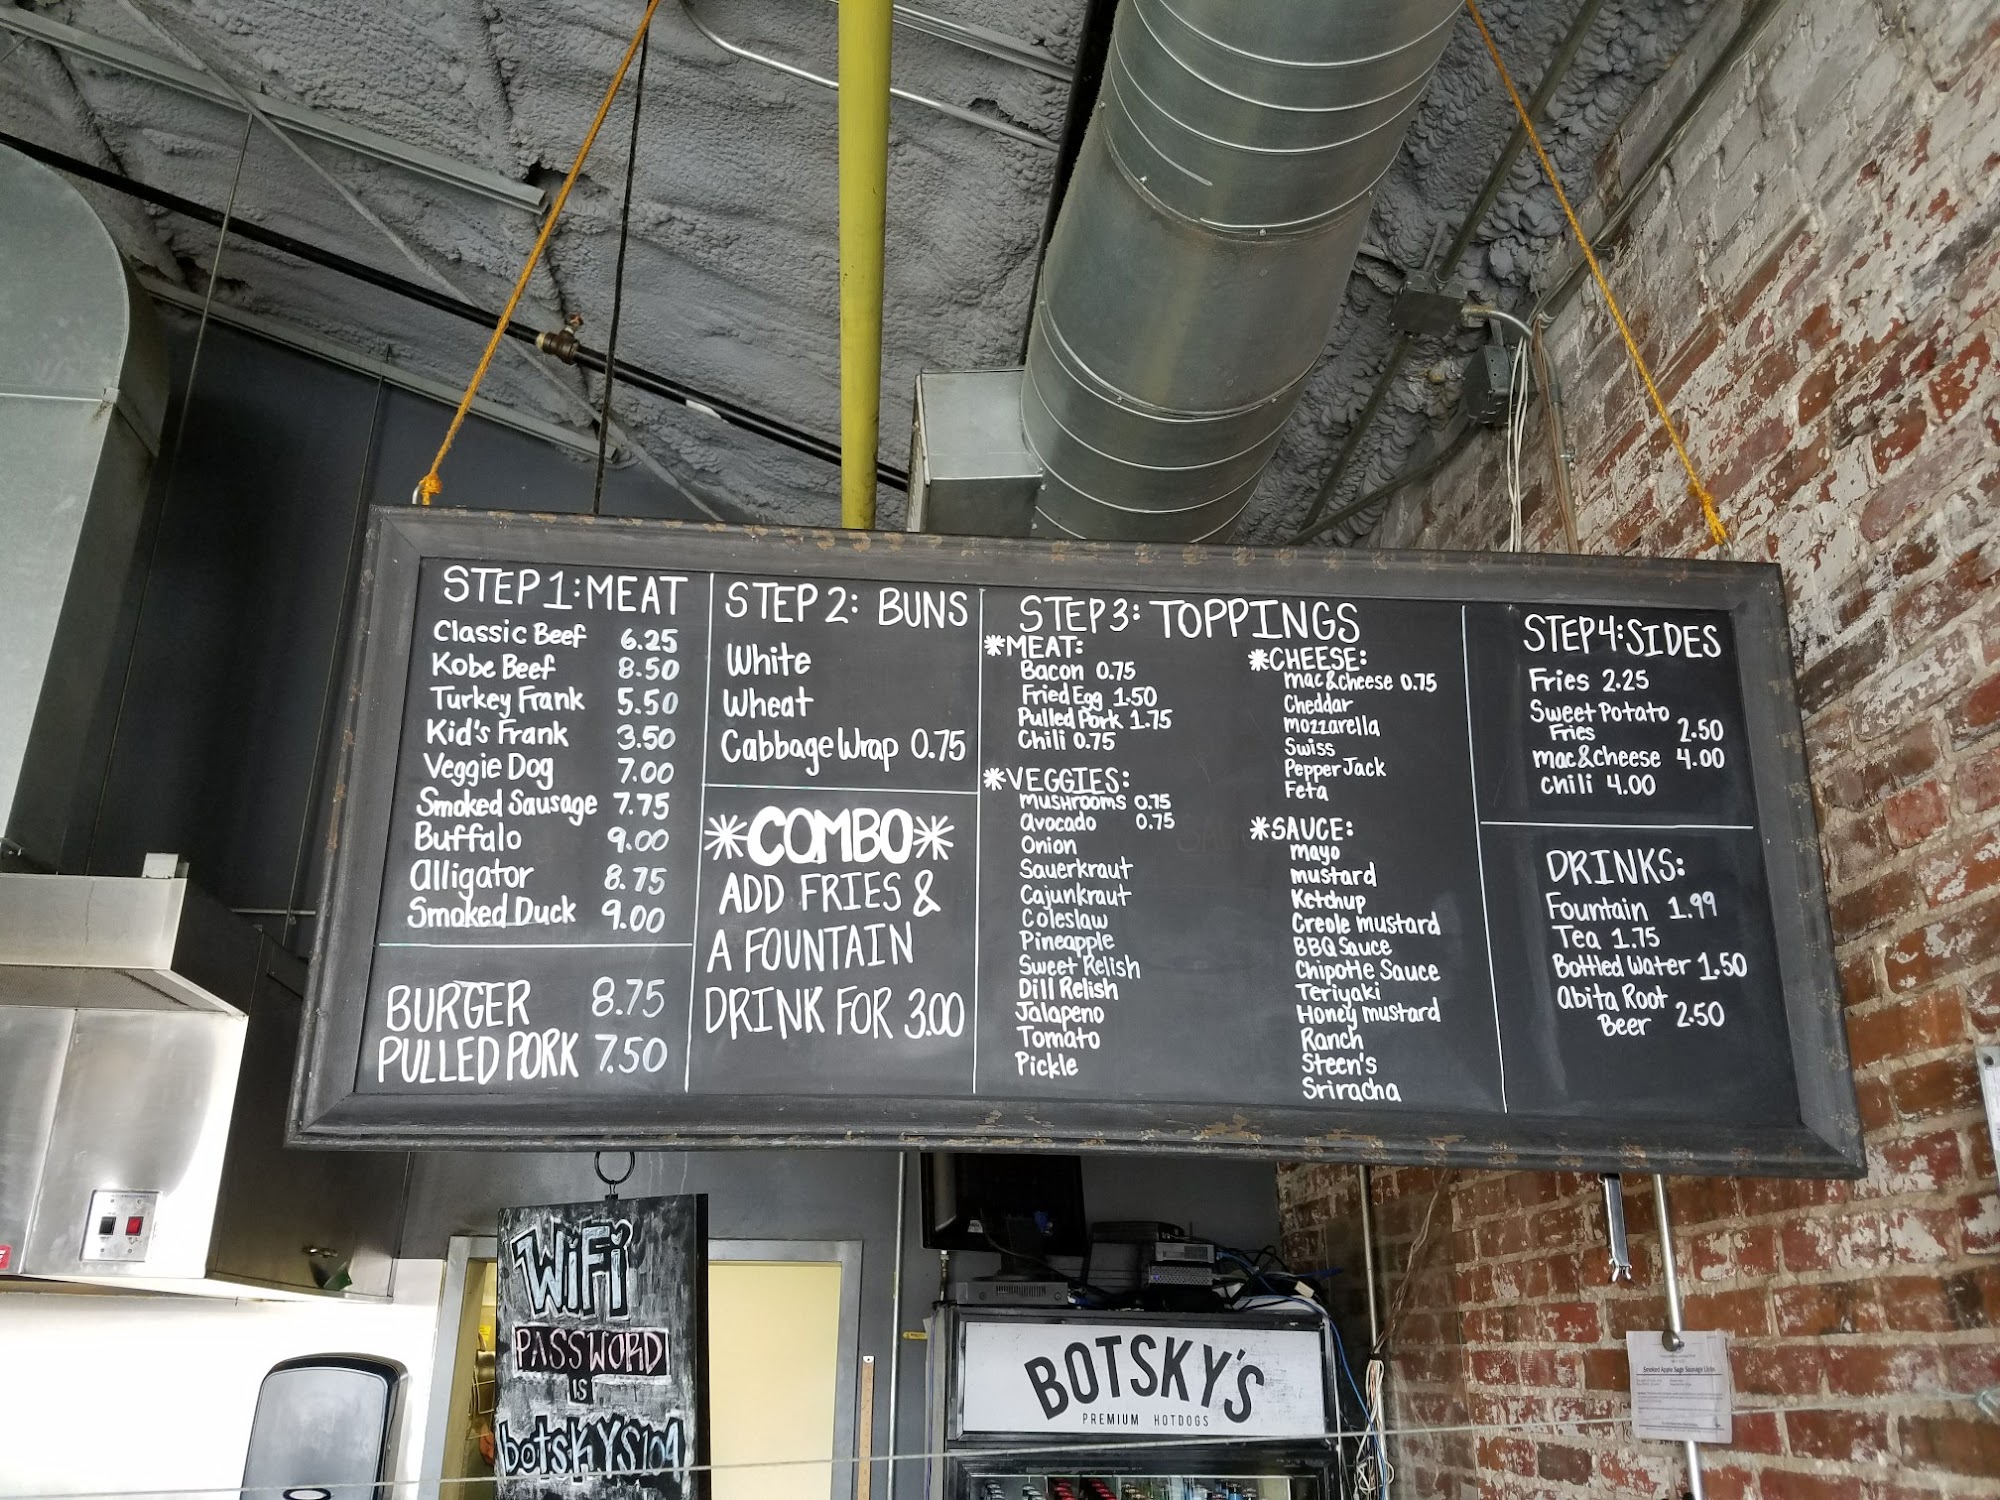 STEP 1: MEAT
Classic Beef 6.25
Kobe Beef 8.50
Turkey Frank 5.50
Kid's Frank 3.50
Veggie Dog 7.00
Smoked Sausage 7.75
Buffalo 9.00
Alligator 8.75
Smoked Duck 9.00
BURGER 8.75
PULLED PORK 7.50
STEP 2: BUNS
White
Wheat
Cabbage Wrap 0.75
*COMBO*
ADD FRIES &
A FOUNTAIN
DRINK FOR 3.00
STEP 3: TOPPINGS
*MEAT:
Bacon 0.75
Fried Egg 1.50
Pulled Pork 1.75
Chili 0.75
*VEGGIES:
Mushrooms 0.75
Avocado 0.75
Onion
Sauerkraut
Cajunkraut
Coleslaw
Pineapple
Sweet Relish
Dill Relish
Jalapeno
Tomato
Pickle
*CHEESE:
Mac&Cheese 0.75
Cheddar
Mozzarella
Swiss
Pepper Jack
Feta
*SAUCE:
Mayo
Mustard
Ketchup
Creole Mustard
BBQ Sauce
Chipotle Sauce
Teriyaki
Honey Mustard
Ranch
Steen's
Sriracha
STEP 4: SIDES
Fries 2.25
Sweet Potato
Fries 2.50
Mac&Cheese 4.00
Chili 4.00
DRINKS:
Fountain 1.99
Tea 1.75
Bottled Water 1.50
Abita Root
Beer 2.50
WiFi
PASSWORD
IS
botskys109
BOTSKY'S
PREMIUM HOTDOGS
Smoked Apple Sage Sausage Links